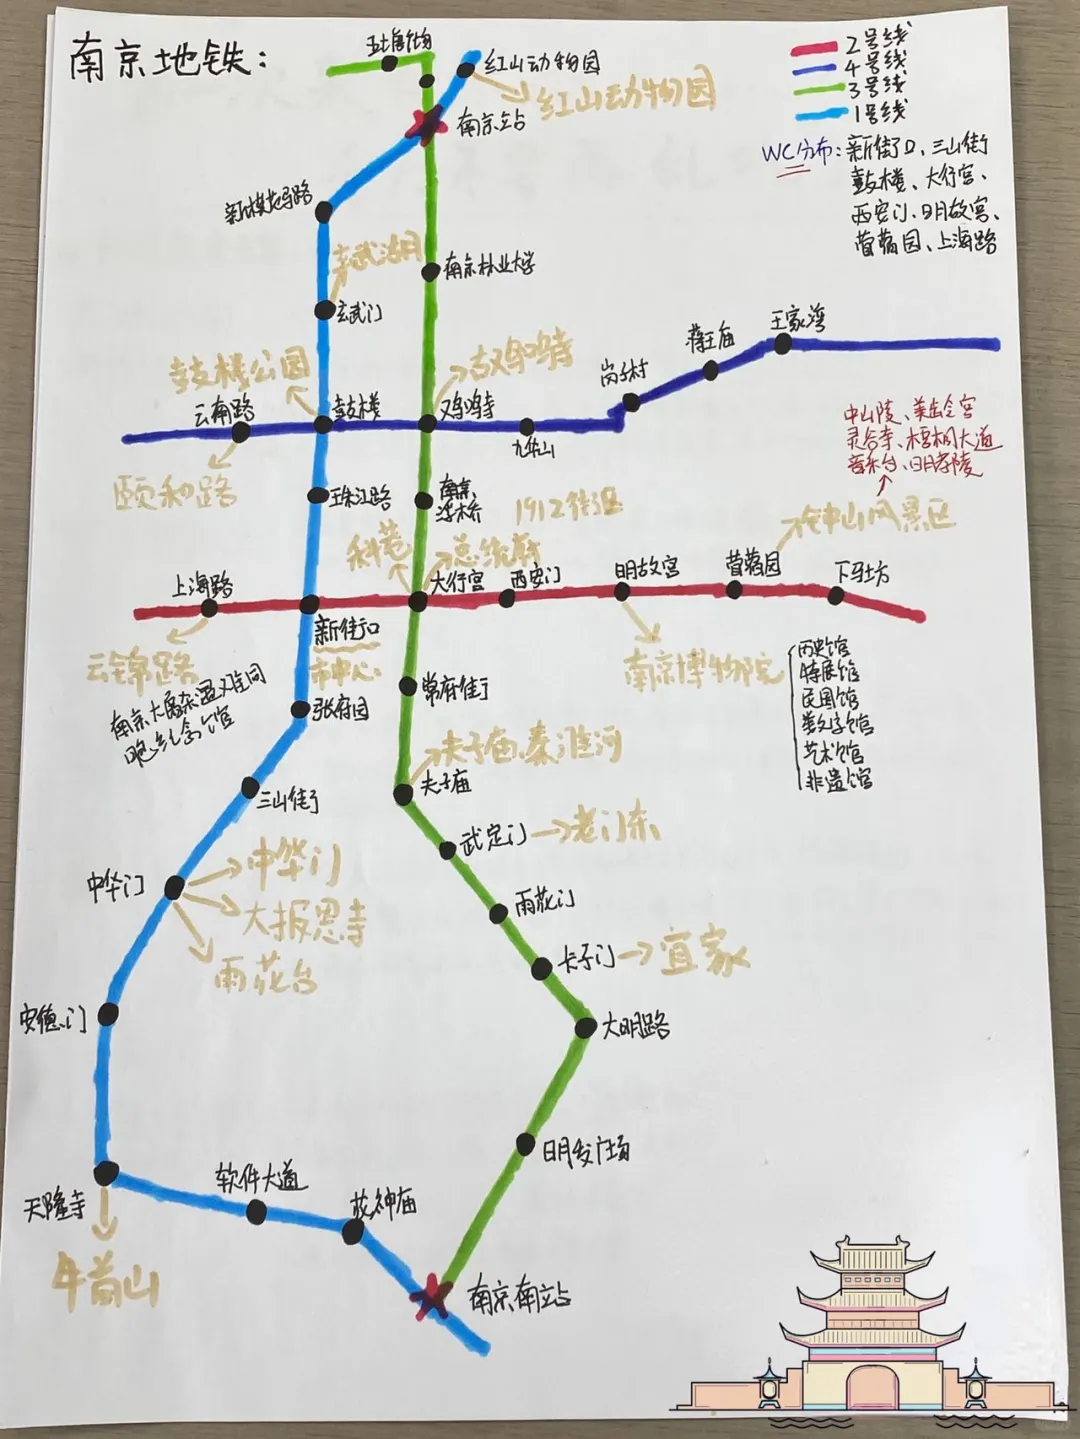 南京地铁:
五塘广场
红山动物园
红山动物园
南京站
2号线
4号线
3号线
1号线
WC分布:新街口、三山街
鼓楼、大行宫、
西安门、明故宫、
苜蓿园、上海路
新模范马路
玄武湖
南京林业大学
玄武门
王家湾
蒋王庙
岗子村
鼓楼公园
古鸡鸣寺
云南路
鼓楼
鸡鸣寺
九华山
中山陵、美龄宫
灵谷寺、梧桐大道
音乐台、明孝陵
颐和路
珠江路
南京
浮桥
1912街区
钟山风景区
科巷
总统府
上海路
大行宫
西安门
明故宫
苜蓿园
下马坊
新街口
市中心
云锦路
南京大屠杀遇难同
胞纪念馆
南京博物院
历史馆
特展馆
民国馆
数字馆
艺术馆
非遗馆
张府园
常府街
夫子庙、秦淮河
夫子庙
三山街
武定门
老门东
中华门
中华门
大报恩寺
雨花台
雨花门
卡子门
宜家
安德门
大明路
明发广场
天隆寺
软件大道
花神庙
牛首山
南京南站